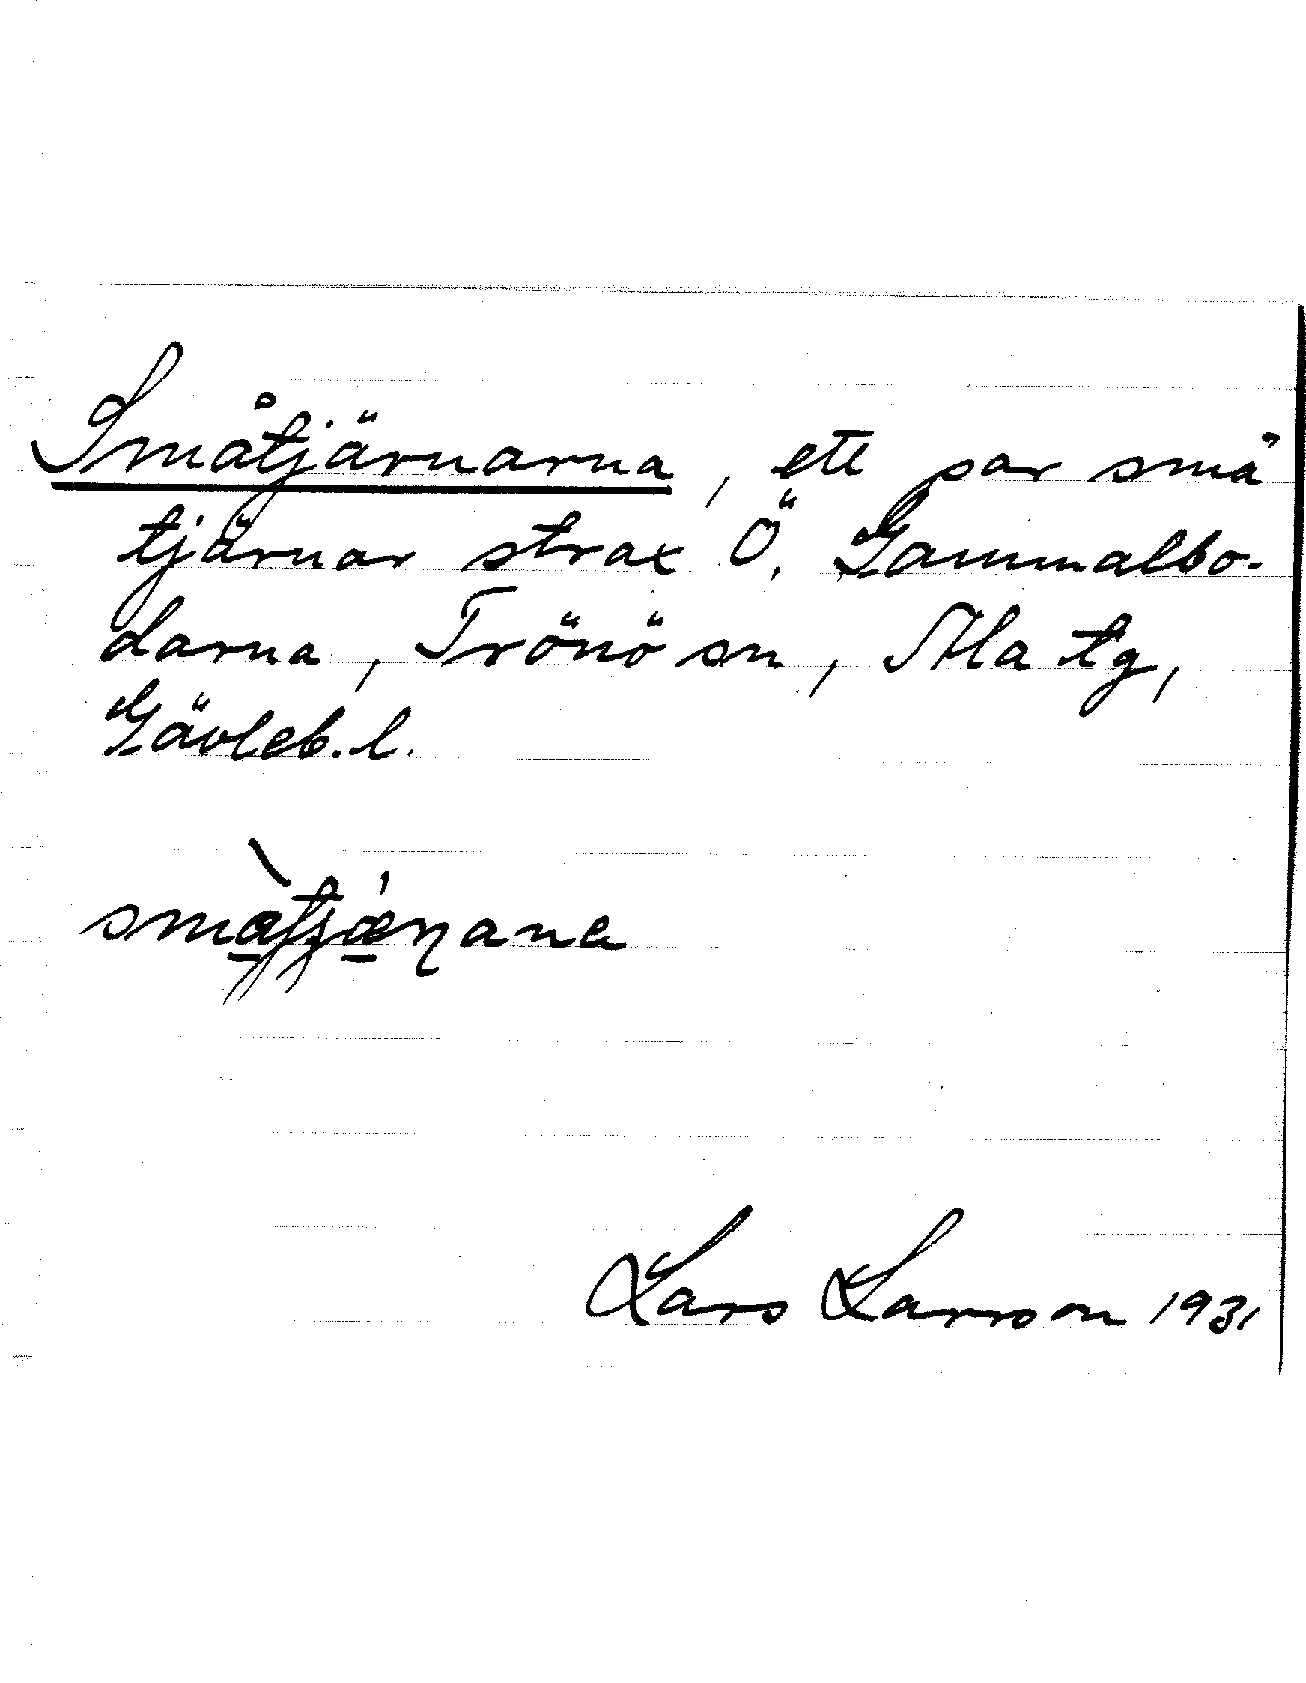 Småtjärnarna, ett par små
tjärnar strax Ö. Gammalbo-
darna, Trönö sn, Ala tg,
Gävleb. l.
Lars Larsson 1931